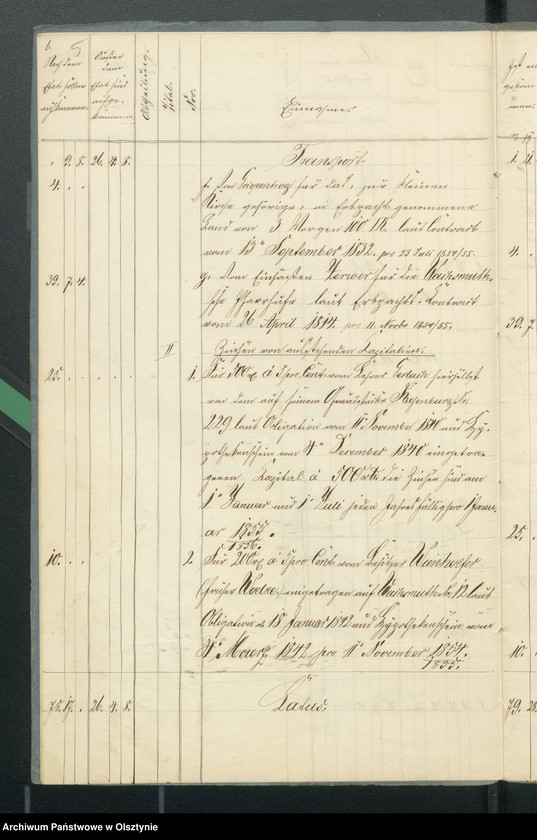 6. 5
Nach dem Etat sollen aufkommen.
Außer dem Etat sind aufgekommen.
Abtheilung.
Tital.
Nro.
Einnahme.
. 9. 5. 26. 4. 8. Transport
4. . . f. von für das, zur kleinen
Kirche gehörige, in Erbpacht genommene
Land von 3 Morgen 100 □R. laut Contract
vom 13n September 1832. pro 23 Juli 1854/55.
39. 7. 4. g. dem Einsaßen für die Wachsmuth-
sche Pfarrhufe laut Erbpachts-Contract
vom 26 April 1814. pro 11 Novbr 1854/55.
II Zinsen von ausstehenden Kapitalien.
25. . . 1. Für 500 à 5 pro Cent vom Lehrer hierselbst
von dem auf seinem Grundstücke No.
229 laut Obligation vom 11n November 1840 und Hy-
pothekenschein vom 4n December 1840 eingetra-
genen Kapital à 500 die Zinsen sind am
1n Januar und 1n Juli jeden Jahres fällig pro Janu-
ar 1855.
1856.
10. . . 2. Für 200 à 5 pro Cent. vom Besitzer
(früher) eingetragen auf Wachsmuth No 12 laut
Obligation v. 18 Januar 1842 und Hypothekenschein vom
4n Maerz 1842 pro 11n November 1854.
1855.
75. 17. . 26. 4. 8. Latus.
1. 4.
4.
39. 7.
25.
10.
79. 28.
Archiwum Państwowe w Olsztynie